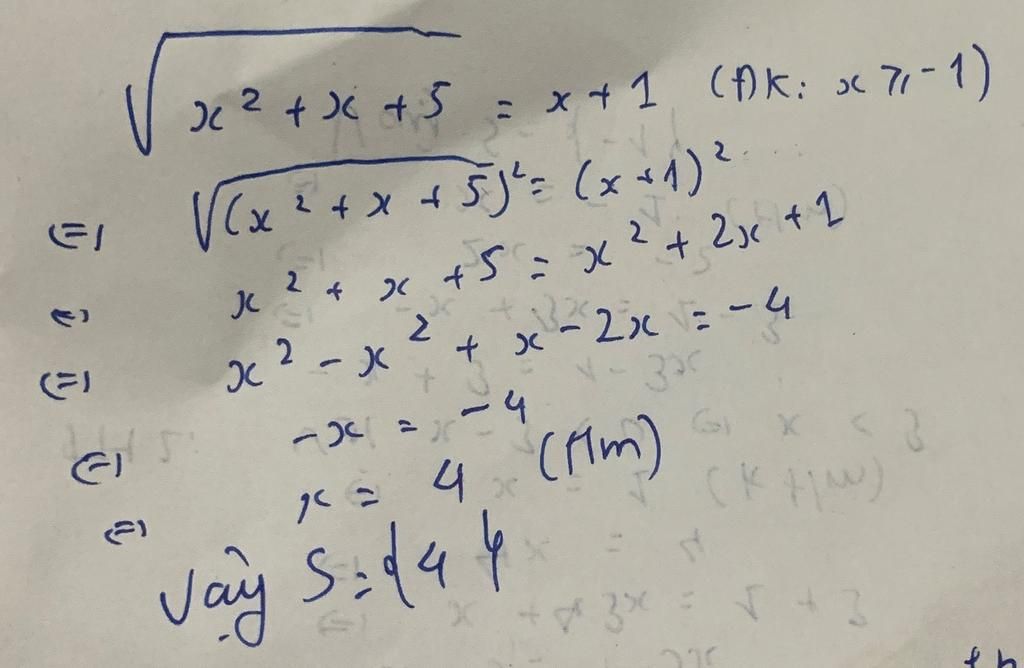 √(x² + x + 5) = x + 1 (ĐK: x ≥ -1)
⇔ √(x² + x + 5)² = (x + 1)²
⇔ x² + x + 5 = x² + 2x + 1
⇔ x² - x² + x - 2x = -4
⇔ -x = -4
⇔ x = 4 (t/m)
Vậy S = {4}